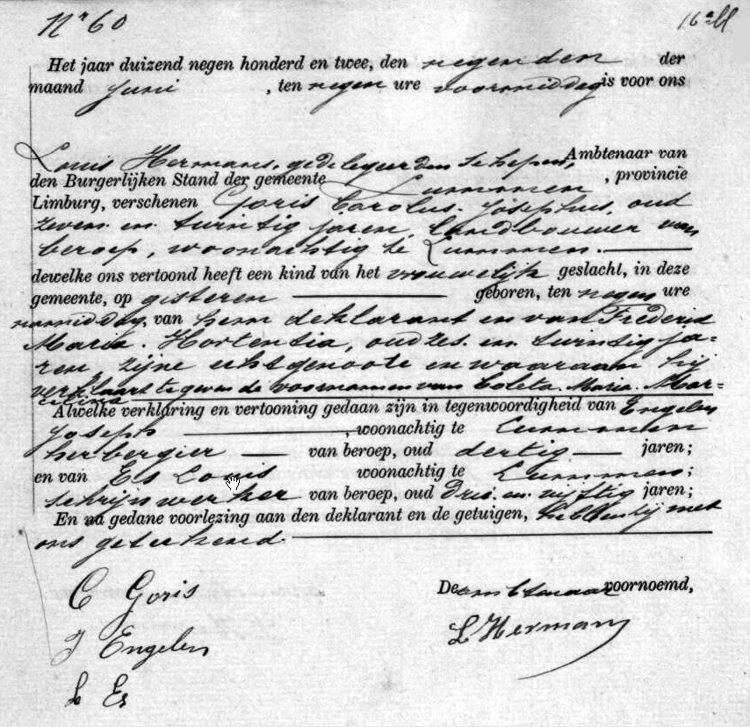 N° 60
Het jaar duizend negen honderd en twee, den negenden der
maand Juni , ten negen ure voormiddag is voor ons
Louis Hermans, gedelegeerden Schepen, Ambtenaar van
den Burgerlijken Stand der gemeente Lummen , provincie
Limburg, verschenen Goris Carolus Josephus, oud
zeven en twintig jaren, landbouwer van
beroep, woonachtig te Lummen.
dewelke ons vertoond heeft een kind van het vrouwelijk geslacht, in deze
gemeente, op gisteren geboren, ten negen ure
namiddag, van hem deklarant en van Frederix
Maria Hortensia, oud zes en twintig ja-
ren, zijne echtgenoote en waaraan hij
verklaart te geven de voornamen van Coleta Maria Mar-
Alwelke verklaring en vertooning gedaan zijn in tegenwoordigheid van Engelen
Joseph , woonachtig te Lummen
herbergier van beroep, oud dertig jaren;
en van Es Louis woonachtig te Lummen;
schrijnwerker van beroep, oud drie en vijftig jaren;
En na gedane voorlezing aan den deklarant en de getuigen, hebben zij met
ons geteekend.
C Goris
De ambtenaar voornoemd,
J Engelen
L Hermans
L Es